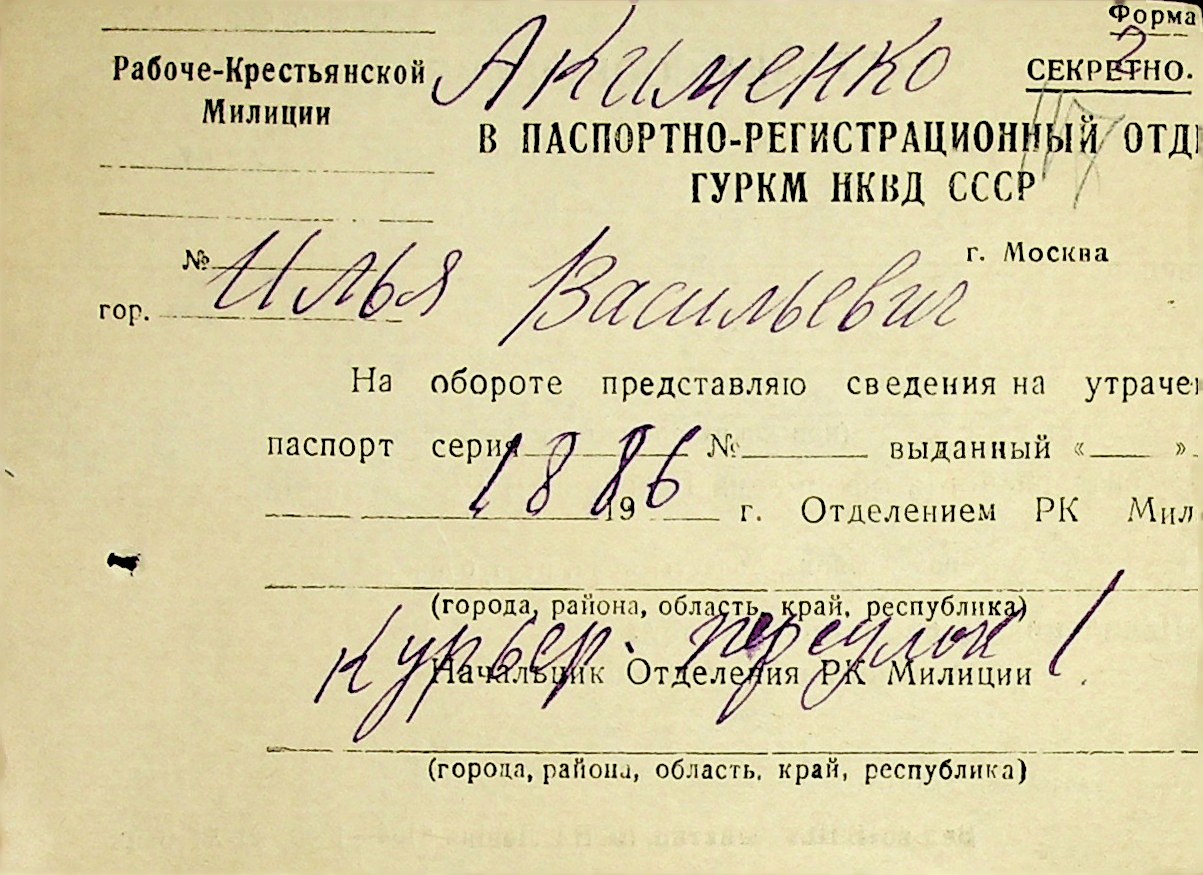 Форма
2
Рабоче-Крестьянской
Милиции
Акименко
СЕКРЕТНО.
В ПАСПОРТНО-РЕГИСТРАЦИОННЫЙ ОТД
ГУРКМ НКВД СССР
№ Илья Васильевич
г. Москва
гор.
На обороте представляю сведения на утрачен
паспорт серия № выданный « ».
1886
19 г. Отделением РК Мил
(города, района, область, край, республика)
Курьер. переулок 1
Начальник Отделения РК Милиции
(города, района, область, край, республика)